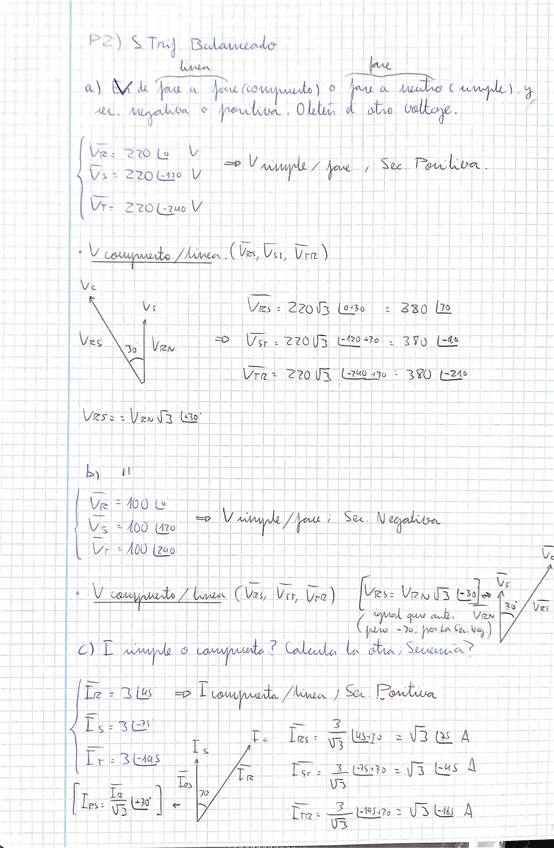 P2) S. Trif. Balanceado
línea fase
a) V de fase a fase (compuesto) o fase a neutro (simple), y
sec. negativa o positiva. Obtén el otro voltaje.
VR = 220 ∠0 V
VS = 220 ∠-120 V ⇒ V simple / fase, Sec. Positiva.
VT = 220 ∠-240 V
· V compuesto / línea. (VRS, VST, VTR)
Vc
Vs
VRS 30º VRN
VRS = 220√3 ∠0+30 = 380 ∠30
⇒ VST = 220√3 ∠-120+30 = 380 ∠-90
VTR = 220√3 ∠-240+30 = 380 ∠-210
VRS = VRN √3 ∠+30º
b) "
VR = 100 ∠0
VS = 100 ∠120 ⇒ V simple / fase, Sec. Negativa
VT = 100 ∠240
· V compuesto / línea (VRS, VST, VTR) [VRS = VRN √3 ∠-30]
igual que antes
(pero -30, por la Sec. Neg)
Vc
Vs
VRN 30º VRS
c) I simple o compuesta? Calcula la otra, Secuencia?
IR = 3 ∠45 ⇒ I compuesta / línea, Sec. Positiva
IS = 3 ∠-75
IT = 3 ∠-195
[IRS = IR/√3 ∠+30º]
Is
Ic
IRS 30 IR
IRS = 3/√3 ∠45+30 = √3 ∠75 A
IST = 3/√3 ∠-75+30 = √3 ∠-45 A
ITR = 3/√3 ∠-195+30 = √3 ∠-165 A